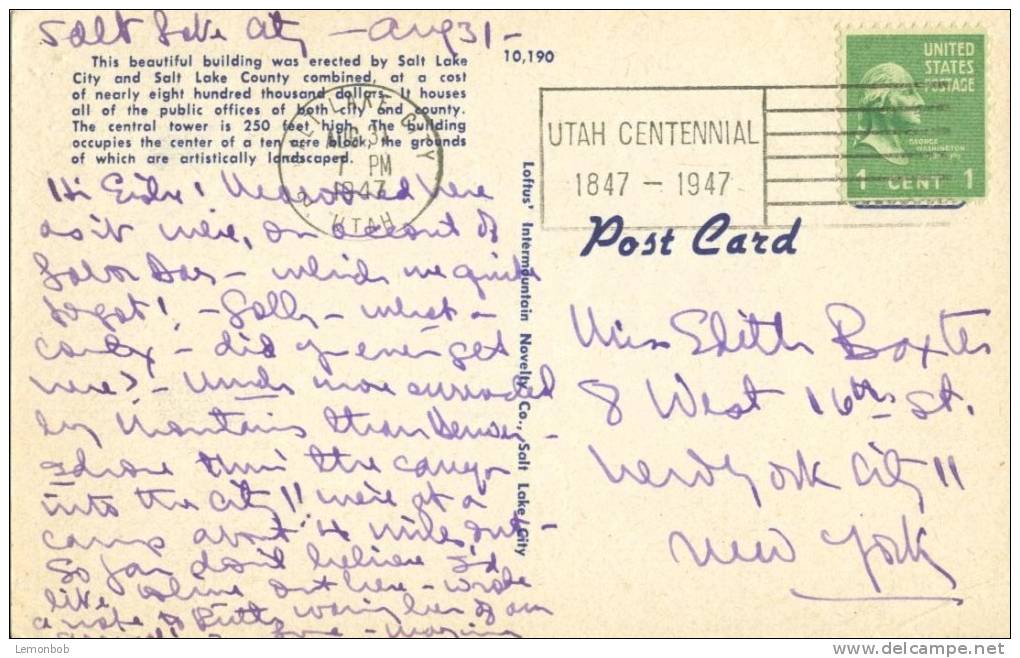 Salt Lake City - Aug 31 -
This beautiful building was erected by Salt Lake
City and Salt Lake County combined, at a cost
of nearly eight hundred thousand dollars. It houses
all of the public offices of both city and county.
The central tower is 250 feet high. The building
occupies the center of a ten acre block, the grounds
of which are artistically landscaped.
10,190
SALT LAKE CITY
AUG 31
7 PM
1947
UTAH
UTAH CENTENNIAL
1847 - 1947
UNITED
STATES
POSTAGE
GEORGE
WASHINGTON
1 CENT 1
Post Card
Loftus' Intermountain Novelty Co., Salt Lake City
Hi Edie! We are here
as it were, on account of
Labor Day - which we quite
forgot! - Golly - what a
- did y' ever get
here? - Much more surrounded
by Mountains than Denver -
- drove thru the canyon
into the city!! We're at a
camp about 4 miles out -
So far don't believe I'd
like out here - wrote
a note to Butts of our
Miss Edith Baxter
8 West 16th St.
New York City 11
New York
Lemonbob
www.delcampe.net